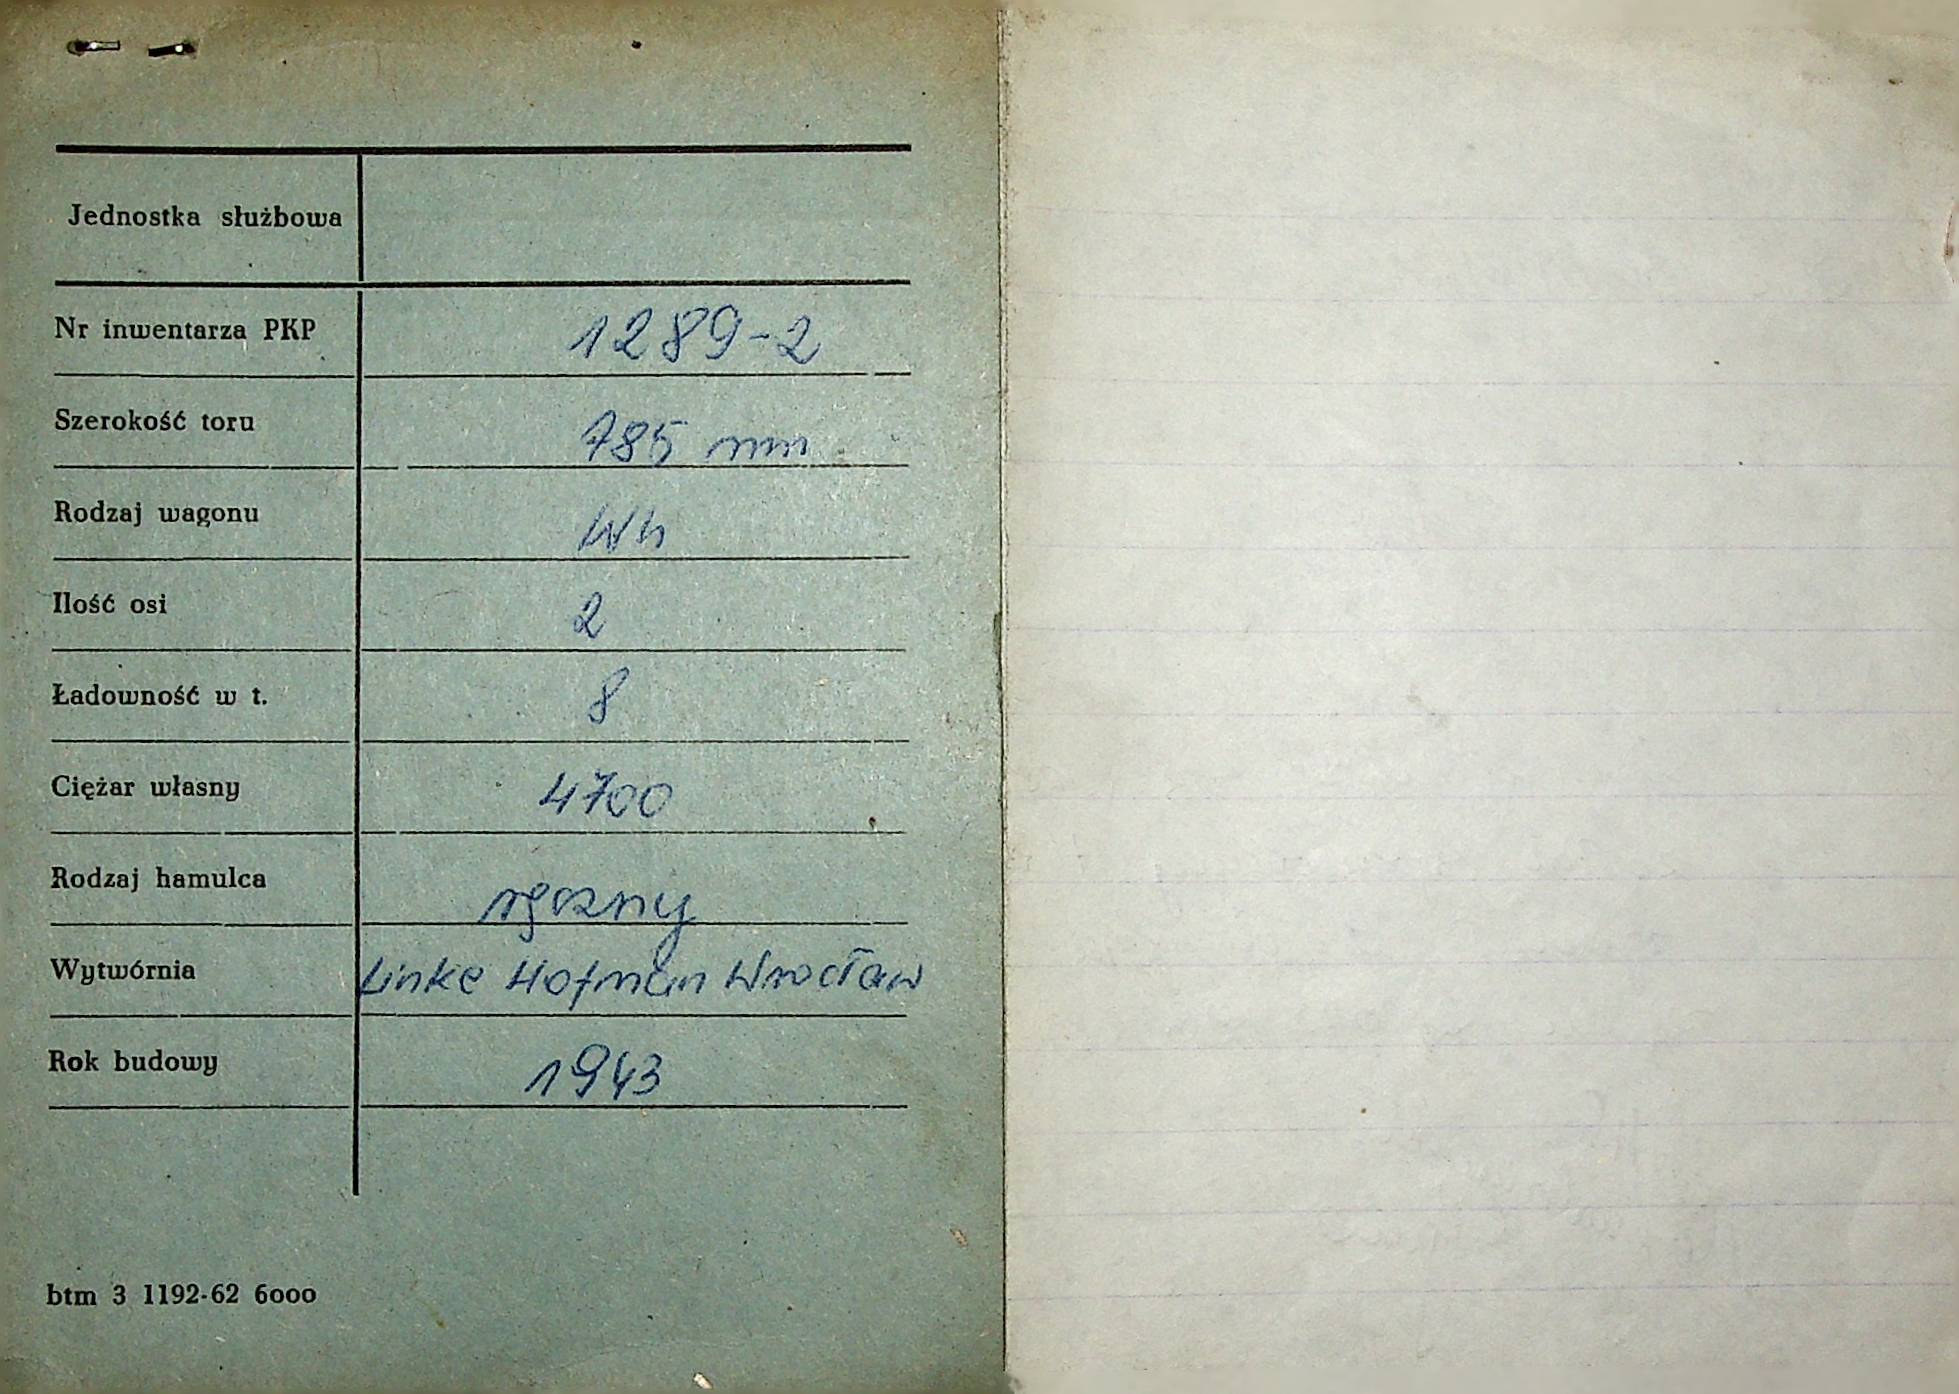 Jednostka służbowa
Nr inwentarza PKP 1289-2
Szerokość toru 785 mm
Rodzaj wagonu Wh
Ilość osi 2
Ładowność w t. 8
Ciężar własny 4700
Rodzaj hamulca ręczny
Wytwórnia Linke Hofman Wrocław
Rok budowy 1943
btm 3 1192-62 6000